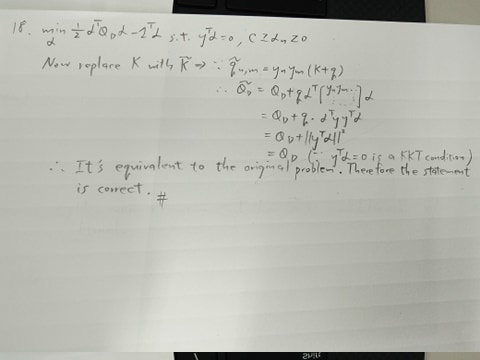 18. min_α 1/2 α^T Q_D α - 1^T α s.t. y^T α = 0, C ≥ α_n ≥ 0
Now replace K with K̃ ⇒ ∵ q̃_{n,m} = y_n y_m (K+q)
∴ Q̃_D = Q_D + q α^T [y_n y_m ...] α
= Q_D + q · α^T y y^T α
= Q_D + ||y^T α||^2
= Q_D (∵ y^T α = 0 is a KKT condition)
∴ It's equivalent to the original problem. Therefore the statement
is correct. #
Shift